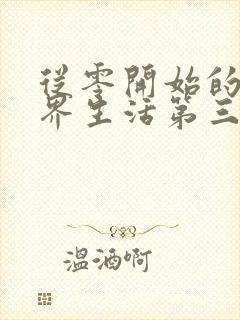 從零開始的
界生活第三
溫酒啊